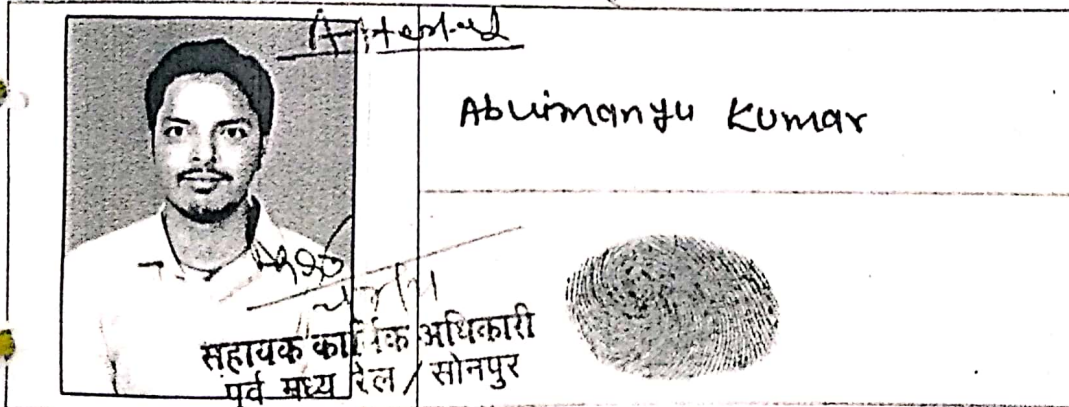 Attested
Abhimanyu Kumar
सहायक कार्मिक अधिकारी
पूर्व मध्य रेल / सोनपुर